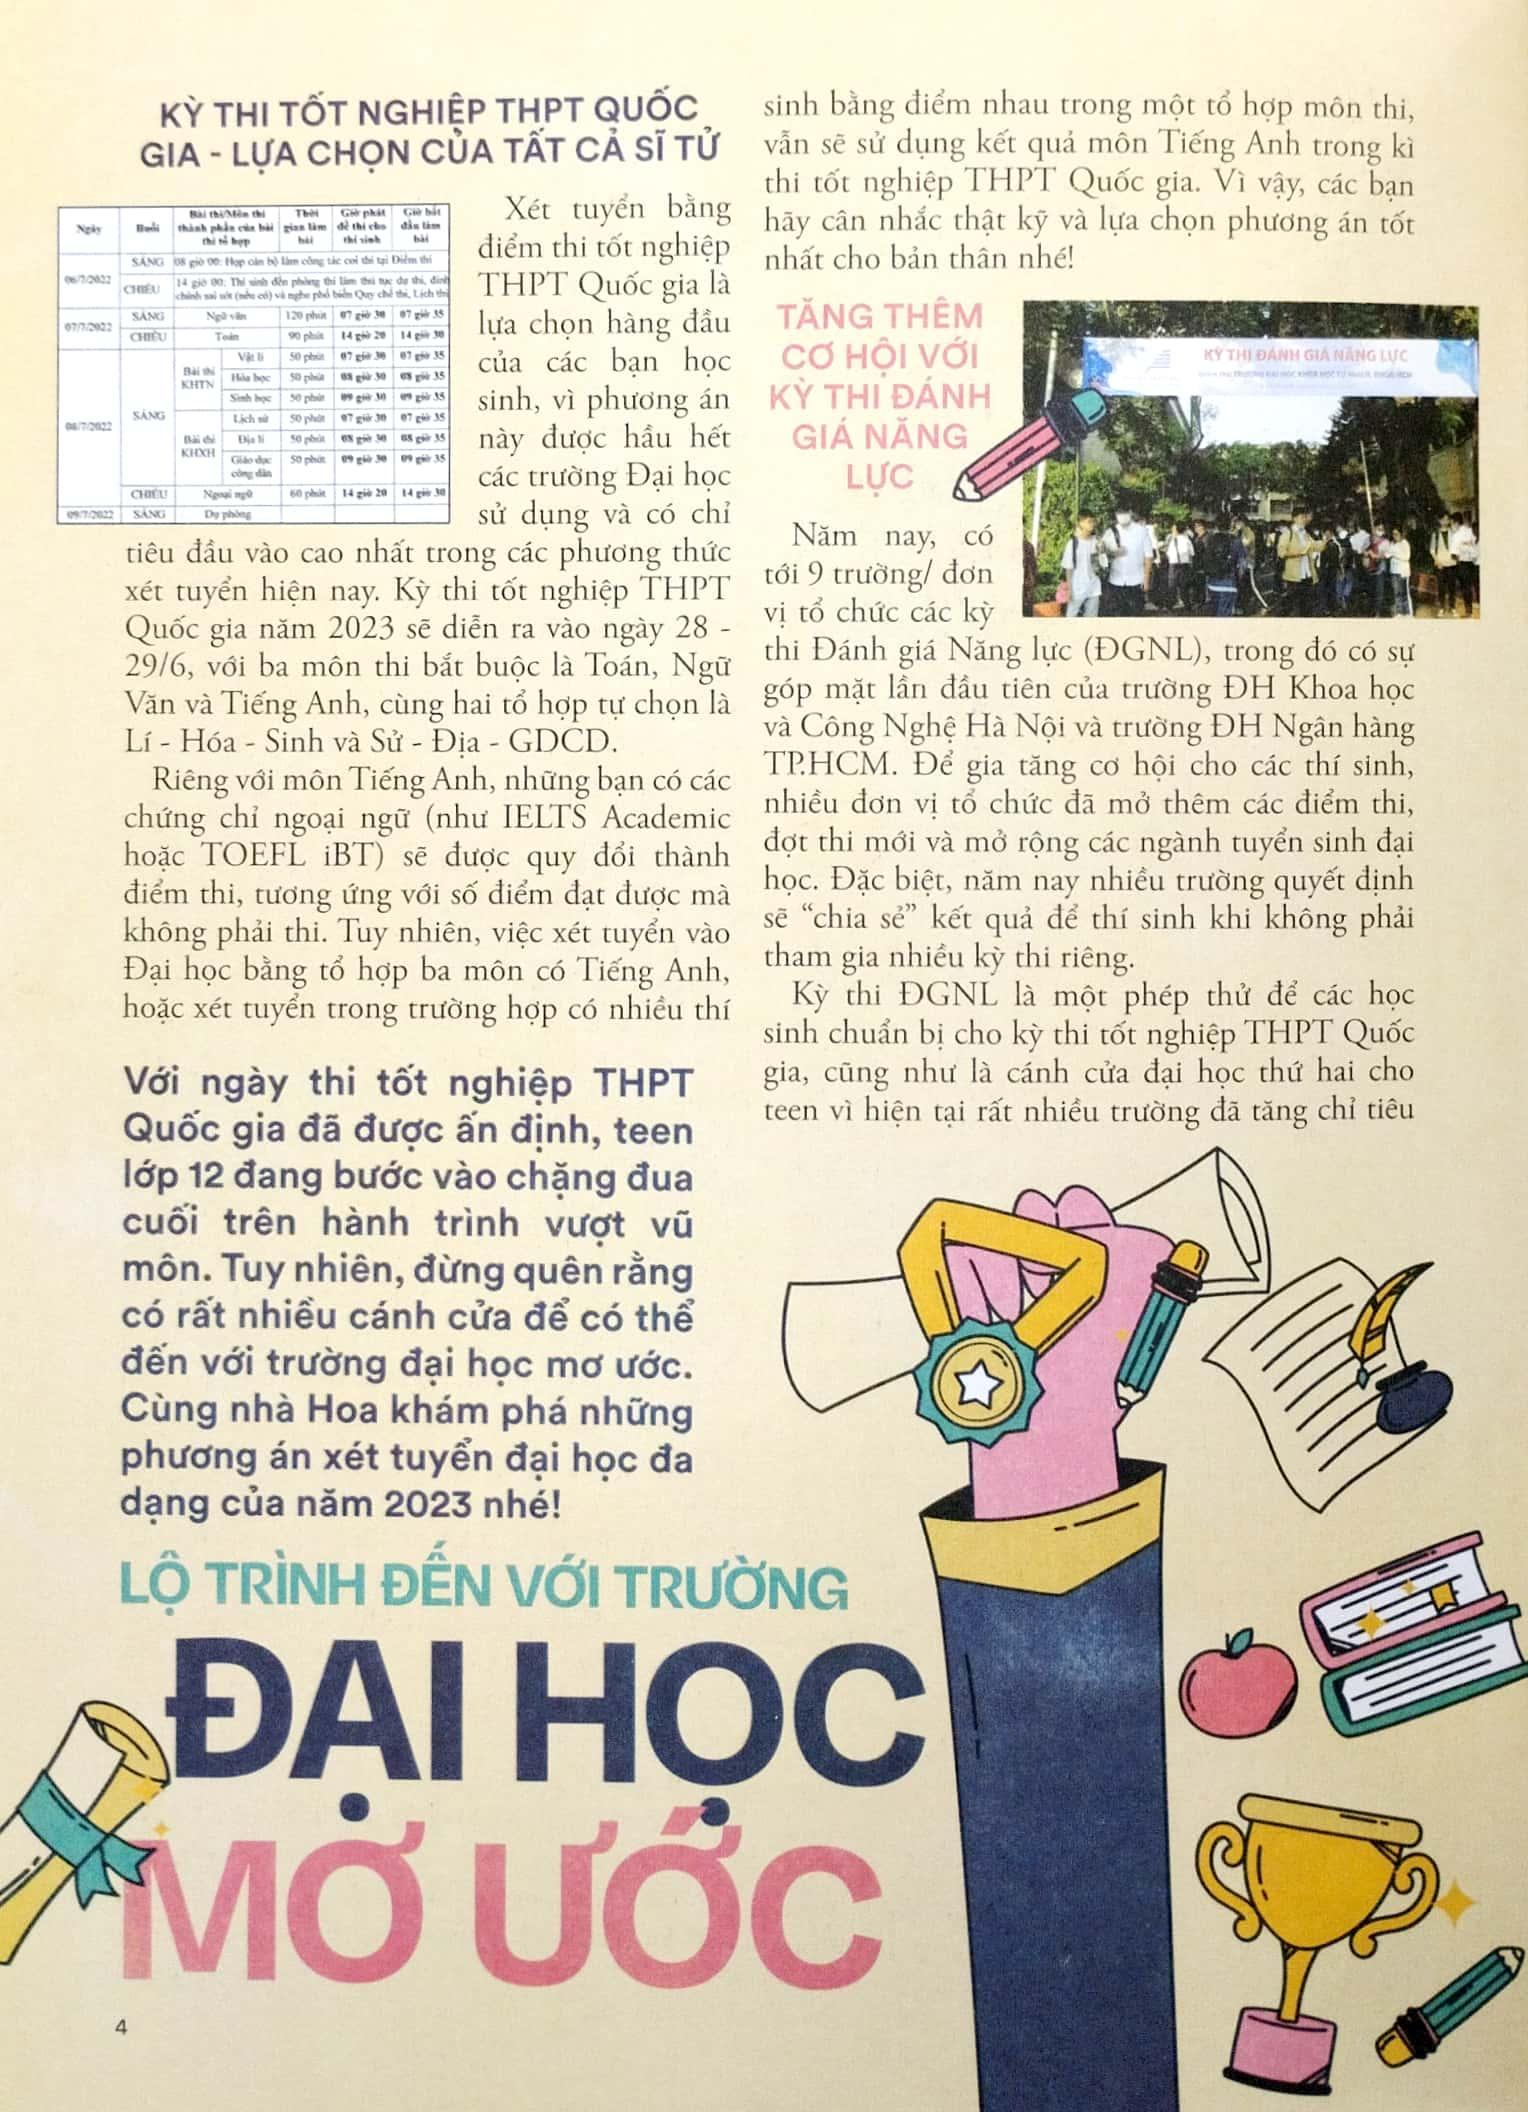 KỲ THI TỐT NGHIỆP THPT QUỐC
GIA - LỰA CHỌN CỦA TẤT CẢ SĨ TỬ
Ngày Buổi Bài thi/Môn thi thành phần của bài thi tổ hợp Thời gian làm bài Giờ phát đề thi cho thí sinh Giờ bắt đầu làm bài
06/7/2022 SÁNG 08 giờ 00: Họp cán bộ làm công tác coi thi tại Điểm thi
CHIỀU 14 giờ 00: Thí sinh đến phòng thi làm thủ tục dự thi, đính
chính sai sót (nếu có) và nghe phổ biến Quy chế thi, Lịch thi
07/7/2022 SÁNG Ngữ văn 120 phút 07 giờ 30 07 giờ 35
CHIỀU Toán 90 phút 14 giờ 20 14 giờ 30
08/7/2022 SÁNG Bài thi KHTN Vật lí 50 phút 07 giờ 30 07 giờ 35
Hóa học 50 phút 08 giờ 30 08 giờ 35
Sinh học 50 phút 09 giờ 30 09 giờ 35
Bài thi KHXH Lịch sử 50 phút 07 giờ 30 07 giờ 35
Địa lí 50 phút 08 giờ 30 08 giờ 35
Giáo dục công dân 50 phút 09 giờ 30 09 giờ 35
CHIỀU Ngoại ngữ 60 phút 14 giờ 20 14 giờ 30
09/7/2022 SÁNG Dự phòng
Xét tuyển bằng
điểm thi tốt nghiệp
THPT Quốc gia là
lựa chọn hàng đầu
của các bạn học
sinh, vì phương án
này được hầu hết
các trường Đại học
sử dụng và có chỉ
tiêu đầu vào cao nhất trong các phương thức
xét tuyển hiện nay. Kỳ thi tốt nghiệp THPT
Quốc gia năm 2023 sẽ diễn ra vào ngày 28 -
29/6, với ba môn thi bắt buộc là Toán, Ngữ
Văn và Tiếng Anh, cùng hai tổ hợp tự chọn là
Lí - Hóa - Sinh và Sử - Địa - GDCD.
Riêng với môn Tiếng Anh, những bạn có các
chứng chỉ ngoại ngữ (như IELTS Academic
hoặc TOEFL iBT) sẽ được quy đổi thành
điểm thi, tương ứng với số điểm đạt được mà
không phải thi. Tuy nhiên, việc xét tuyển vào
Đại học bằng tổ hợp ba môn có Tiếng Anh,
hoặc xét tuyển trong trường hợp có nhiều thí
sinh bằng điểm nhau trong một tổ hợp môn thi,
vẫn sẽ sử dụng kết quả môn Tiếng Anh trong kì
thi tốt nghiệp THPT Quốc gia. Vì vậy, các bạn
hãy cân nhắc thật kỹ và lựa chọn phương án tốt
nhất cho bản thân nhé!
TĂNG THÊM
CƠ HỘI VỚI
KỲ THI ĐÁNH
GIÁ NĂNG
LỰC
KỲ THI ĐÁNH GIÁ NĂNG LỰC
Năm nay, có
tới 9 trường/ đơn
vị tổ chức các kỳ
thi Đánh giá Năng lực (ĐGNL), trong đó có sự
góp mặt lần đầu tiên của trường ĐH Khoa học
và Công Nghệ Hà Nội và trường ĐH Ngân hàng
TP.HCM. Để gia tăng cơ hội cho các thí sinh,
nhiều đơn vị tổ chức đã mở thêm các điểm thi,
đợt thi mới và mở rộng các ngành tuyển sinh đại
học. Đặc biệt, năm nay nhiều trường quyết định
sẽ “chia sẻ” kết quả để thí sinh khi không phải
tham gia nhiều kỳ thi riêng.
Kỳ thi ĐGNL là một phép thử để các học
sinh chuẩn bị cho kỳ thi tốt nghiệp THPT Quốc
gia, cũng như là cánh cửa đại học thứ hai cho
teen vì hiện tại rất nhiều trường đã tăng chỉ tiêu
Với ngày thi tốt nghiệp THPT
Quốc gia đã được ấn định, teen
lớp 12 đang bước vào chặng đua
cuối trên hành trình vượt vũ
môn. Tuy nhiên, đừng quên rằng
có rất nhiều cánh cửa để có thể
đến với trường đại học mơ ước.
Cùng nhà Hoa khám phá những
phương án xét tuyển đại học đa
dạng của năm 2023 nhé!
LỘ TRÌNH ĐẾN VỚI TRƯỜNG
ĐẠI HỌC
MƠ ƯỚC
4